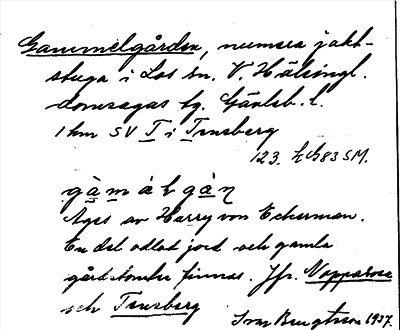 Gammelgården, numera jakt-
stuga i Los sn. V. Hälsingl.
domsagas tg. Gävleb. l.
1 km SV T i Tensberg
123. SM.
gàmálgàη
Äges av Harry von Eckerman.
En del odlad jord och gamla
gårdstomter finnas. Jfr. Nopparova
och Tensberg
Ivar Bengtsson 1937.